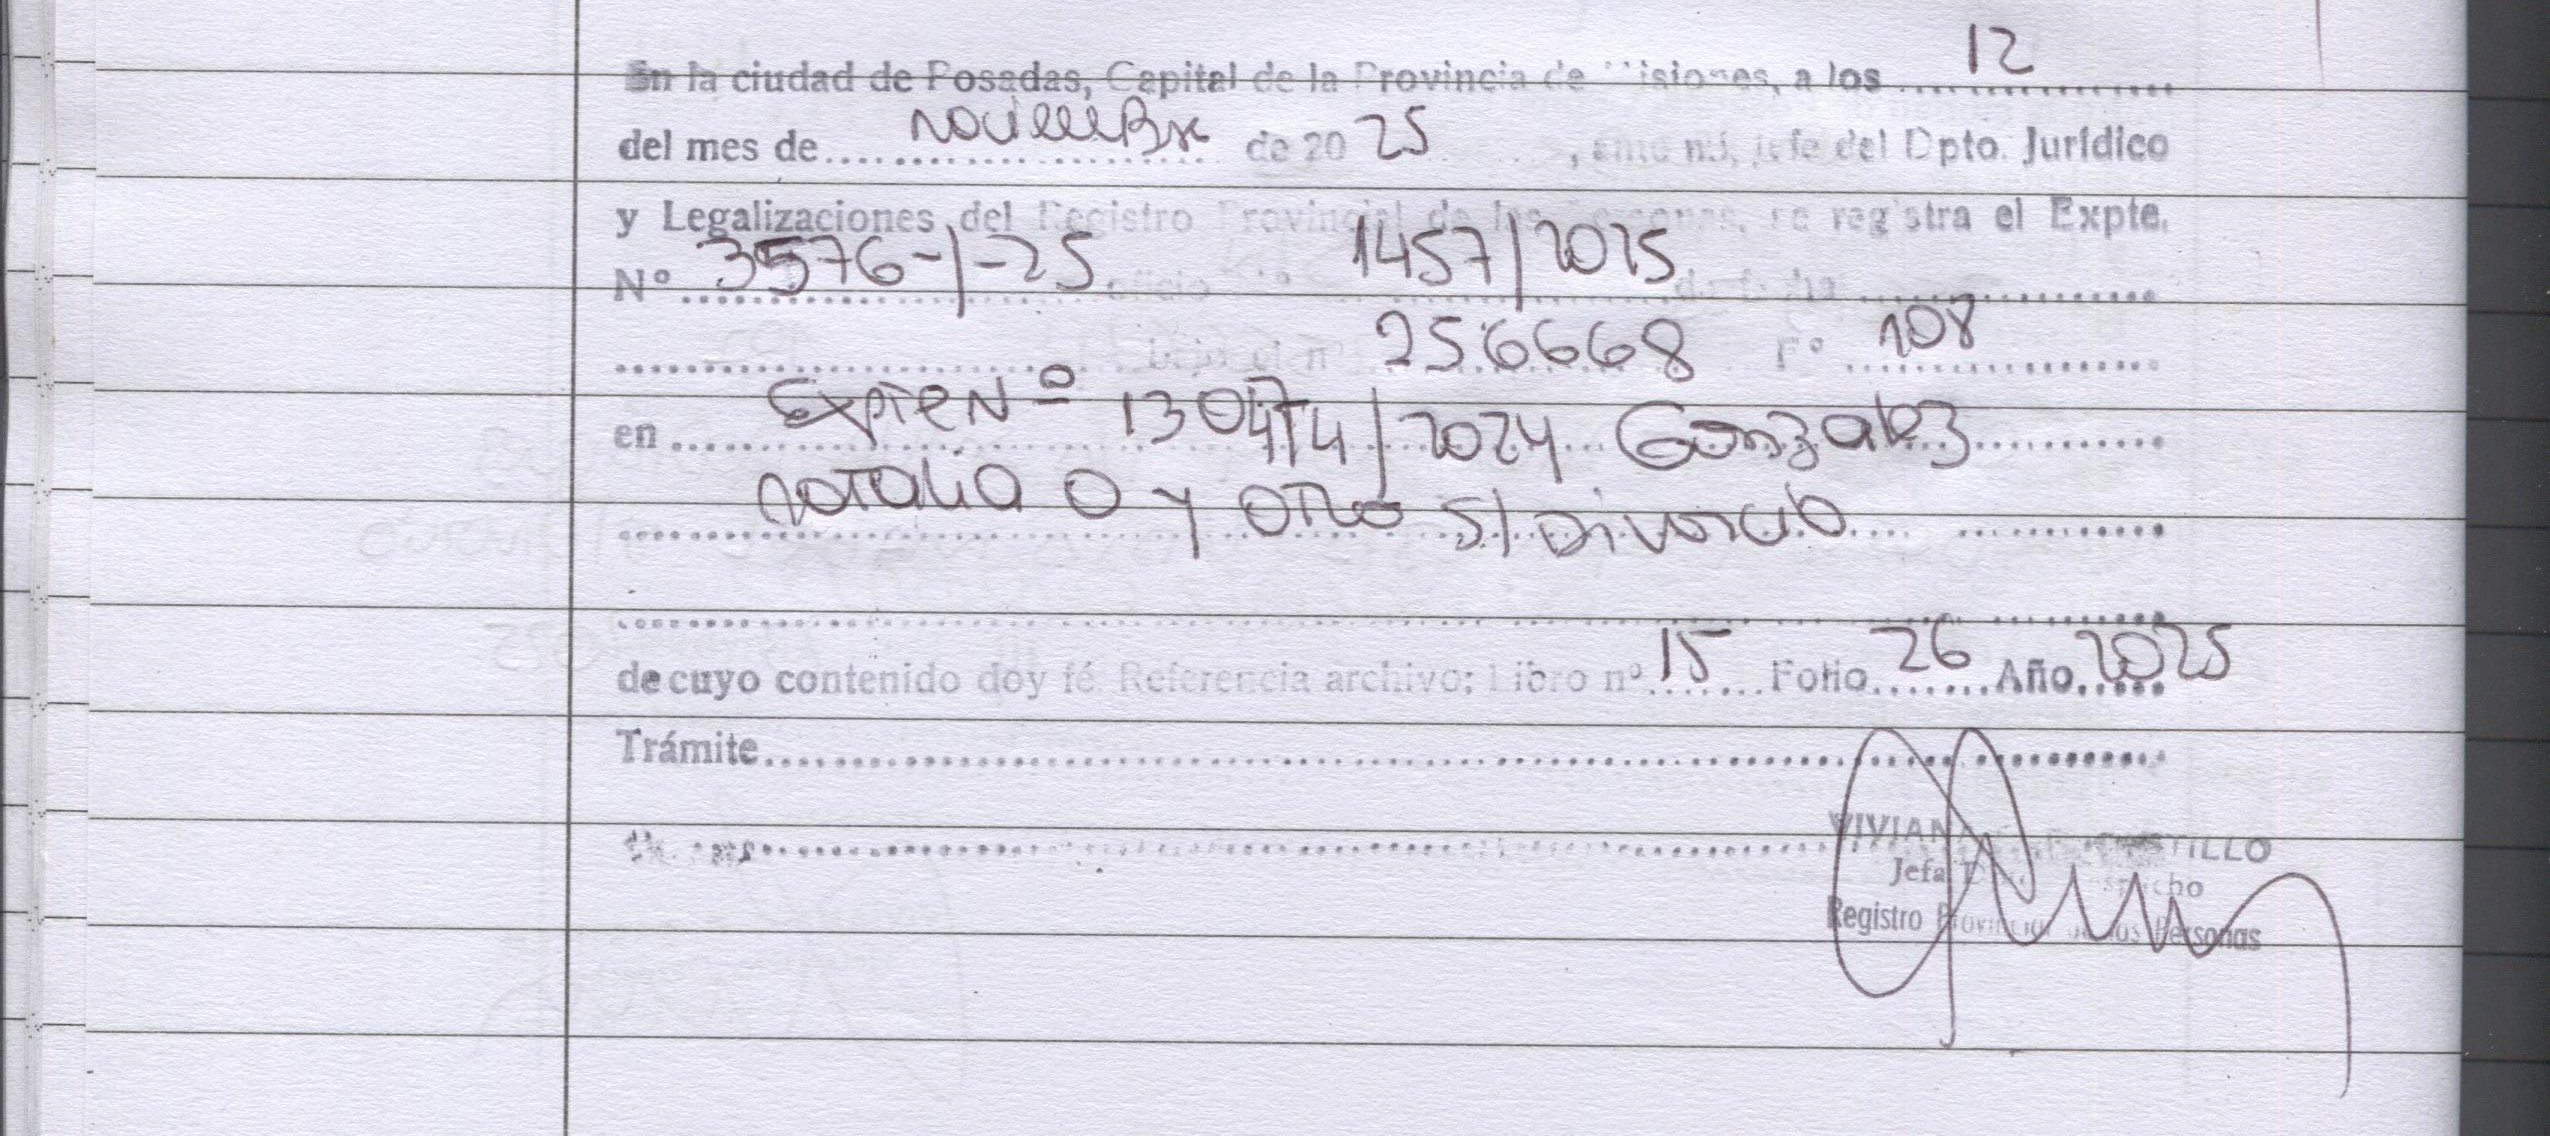 En la ciudad de Posadas, Capital de la Provincia de Misiones, a los 12
del mes de noviembre de 20 25, ante mí, jefe del Dpto. Jurídico
y Legalizaciones del Registro Provincial de las Personas, se registra el Expte.
Nº 3576-/-25 oficio nº 1457/2025 de fecha
bajo el nº 256668 Fº 108
en Expte Nº /2024 Gonzalez
Natalia O y otro s/ Divorcio
de cuyo contenido doy fé Referencia archivo; Libro nº 15 Folio 26 Año 2025
Trámite
VIVIANA CASTILLO
Jefa Despacho
Registro Provincial de las Personas